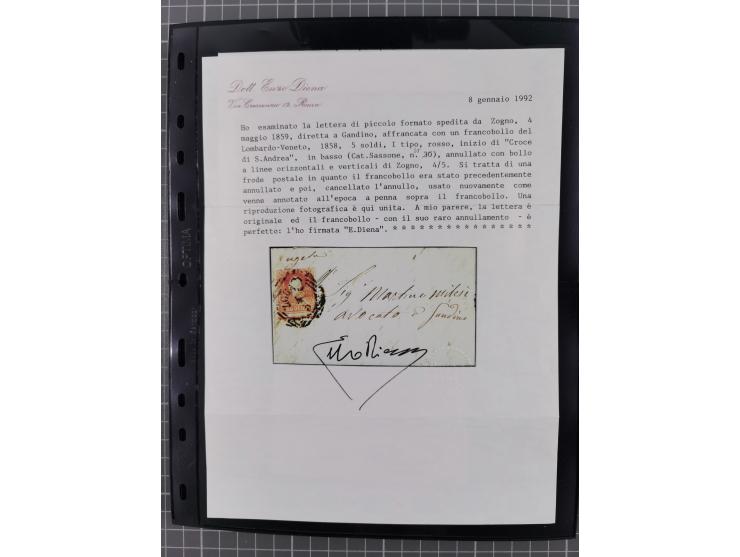 Dott. Enzo Diena
Via Crescenzio 19. Roma
8 gennaio 1992
Ho esaminato la lettera di piccolo formato spedita da Zogno, 4
maggio 1859, diretta a Gandino, affrancata con un francobollo del
Lombardo-Veneto, 1858, 5 soldi, I tipo, rosso, inizio di "Croce
di S.Andrea", in basso (Cat.Sassone, n. 30), annullato con bollo
a linee orizzontali e verticali di Zogno, 4/5. Si tratta di una
frode postale in quanto il francobollo era stato precedentemente
annullato e poi, cancellato l'annullo, usato nuovamente come
venne annotato all'epoca a penna sopra il francobollo. Una
riproduzione fotografica è qui unita. A mio parere, la lettera è
originale ed il francobollo - con il suo raro annullamento - è
perfetto: l'ho firmata "E.Diena". * * * * * * * * * * * * * * * *
Sig Martino Milesi
avocato a Gandino
OPTIMA